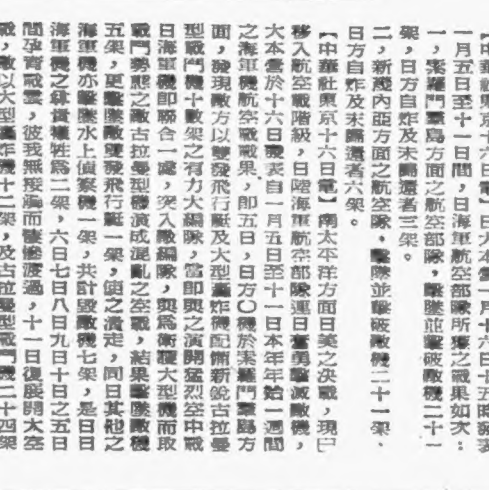 【中華社東京十六日電】日大本營一月十六日十五時發表
一月五日至十一日間，日海軍航空部隊所獲之戰果如次：
一，索羅門羣島方面之航空部隊，擊墜並擊破敵機二十一
架，日方自炸及未歸還者三架。
二，新幾內亞方面之航空隊，擊墜並擊破敵機二十一架，
日方自炸及未歸還者六架。
【中華社東京十六日電】南太平洋方面日美之決戰，現已
移入航空戰階級，日陸海軍航空部隊連日奮勇擊滅敵機，
大本營於十六日發表自一月五日至十一日本年年始一週間
之海軍機航空戰戰果，即五日，日方〇機於索羅門羣島方
面，發現敵方以雙發飛行艇及大型轟炸機配備新銳古拉曼
型戰鬥機十數架之有力大編隊，當即與之演開猛烈空中戰
日海軍機即聯合一處，突入敵編隊，與爲衛護大型機而取
戰鬥勢態之敵古拉曼型機演成混亂之空戰，結果擊墜敵機
五架，更擊墜敵雙發飛行艇一架，使之潰走，同日其他之
海軍機亦擊墜水上偵察機一架，共計毀敵機七架，是日日
海軍機之尊貴犧牲爲二架，六日七日八日九日十日之五日
間孕育戰雲，彼我無接觸而悽慘渡過，十一日復展開大空
戰，敵以大型轟炸機十二架，及古拉曼型戰鬥機二十四架